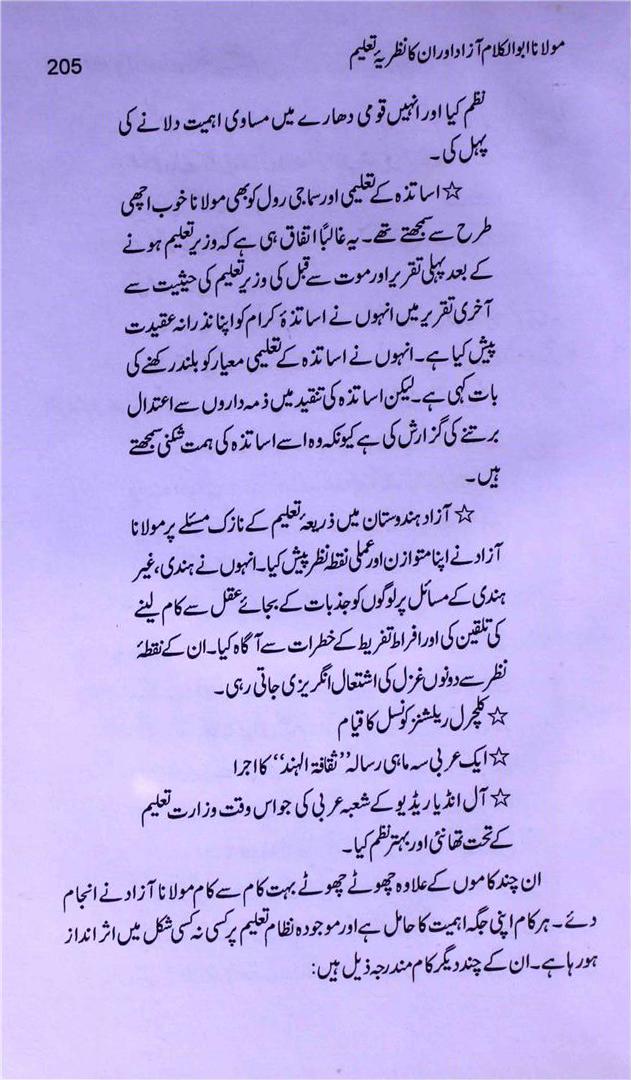 مولانا ابوالکلام آزاد اور ان کا نظریۂ تعلیم
205
نظم کیا اور انہیں قومی دھارے میں مساوی اہمیت دلانے کی
پہل کی۔
☆ اساتذہ کے تعلیمی اور سماجی رول کو بھی مولانا خوب اچھی
طرح سے سمجھتے تھے۔ یہ غالباً اتفاق ہی ہے کہ وزیر تعلیم ہونے
کے بعد پہلی تقریر اور موت سے قبل کی وزیر تعلیم کی حیثیت سے
آخری تقریر میں انہوں نے اساتذۂ کرام کو اپنا نذرانہ عقیدت
پیش کیا ہے۔ انہوں نے اساتذہ کے تعلیمی معیار کو بلند رکھنے کی
بات کہی ہے۔ لیکن اساتذہ کی تنقید میں ذمہ داروں سے اعتدال
برتنے کی گزارش کی ہے کیونکہ وہ اسے اساتذہ کی ہمت شکنی سمجھتے
ہیں۔
☆ آزاد ہندوستان میں ذریعۂ تعلیم کے نازک مسئلے پر مولانا
آزاد نے اپنا متوازن اور عملی نقطہ نظر پیش کیا۔ انہوں نے ہندی، غیر
ہندی کے مسائل پر لوگوں کو جذبات کے بجائے عقل سے کام لینے
کی تلقین کی اور افراط تفریط کے خطرات سے آگاہ کیا۔ ان کے نقطۂ
نظر سے دونوں غزل کی اشتعال انگریزی جاتی رہی۔
☆ کلچرل ریلشنز کونسل کا قیام
☆ ایک عربی سہ ماہی رسالہ ”ثقافۃ الہند“ کا اجرا
☆ آل انڈیا ریڈیو کے شعبہ عربی کی جو اس وقت وزارت تعلیم
کے تحت تھا نئی اور بہتر نظم کیا۔
ان چند کاموں کے علاوہ چھوٹے چھوٹے بہت کام سے کام مولانا آزاد نے انجام
دئے۔ ہر کام اپنی جگہ اہمیت کا حامل ہے اور موجودہ نظام تعلیم پر کسی نہ کسی شکل میں اثر انداز
ہو رہا ہے۔ ان کے چند دیگر کام مندرجہ ذیل ہیں: